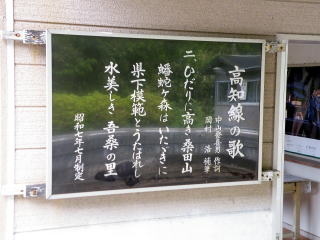 高知線の歌
中山金喜男 作詞
岡村 浩 補筆
二、ひだりに高き 桑田山
蟠蛇ケ森は いたゞきに
県下模範と うたはれし
水美しき 吾桑の里
昭和七年七月制定